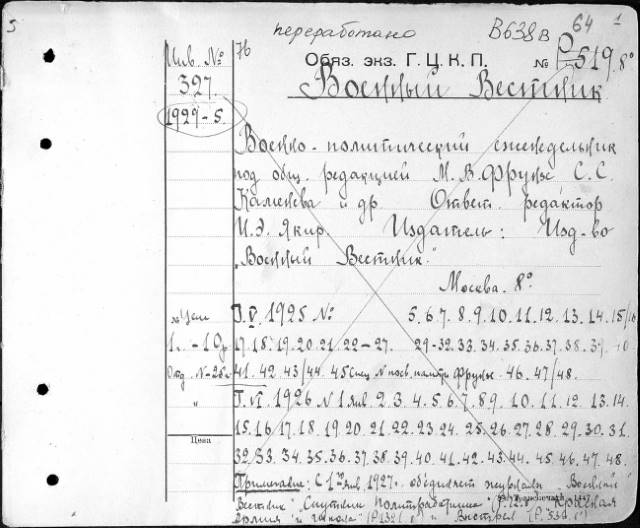 5
переработано В638в 64 1
Инв. № 76 Обяз. экз. Г. Ц. К. П. № Р519 8°
327. Военный Вестник
1929-5.
Военно-политический еженедельник
под общ. редакцией М.В. Фрунзе С.С.
Каменева и др Ответ. редактор
И.Э. Якир. Издатель: Изд-во
"Военный Вестник."
Москва. 8°
Цена Г.V. 1925 № 5.6.7.8.9.10.11.12.13.14.15/16
1 - 10р 17.18.19.20.21.22-27. 29-32.33.34.35.36.37.38.39.40
Отд № 25к 41.42.43/44.45 спец № посв. памяти Фрунзе 46.47/48.
" Г.VI. 1926 № 1 янв 2.3.4.5.6.7.8.9.10.11.12.13.14.
15.16.17.18.19.20.21.22.23.24.25.26.27.28.29.30.31.
Цена 32.33.34.35.36.37.38.39.40.41.42.43.44.45.46.47.48.
Примечание: С 1го янв. 1927г. объединяет журналы Военный
Вестник" "Спутник Политработника" Красная
армия и и "Выстрел"